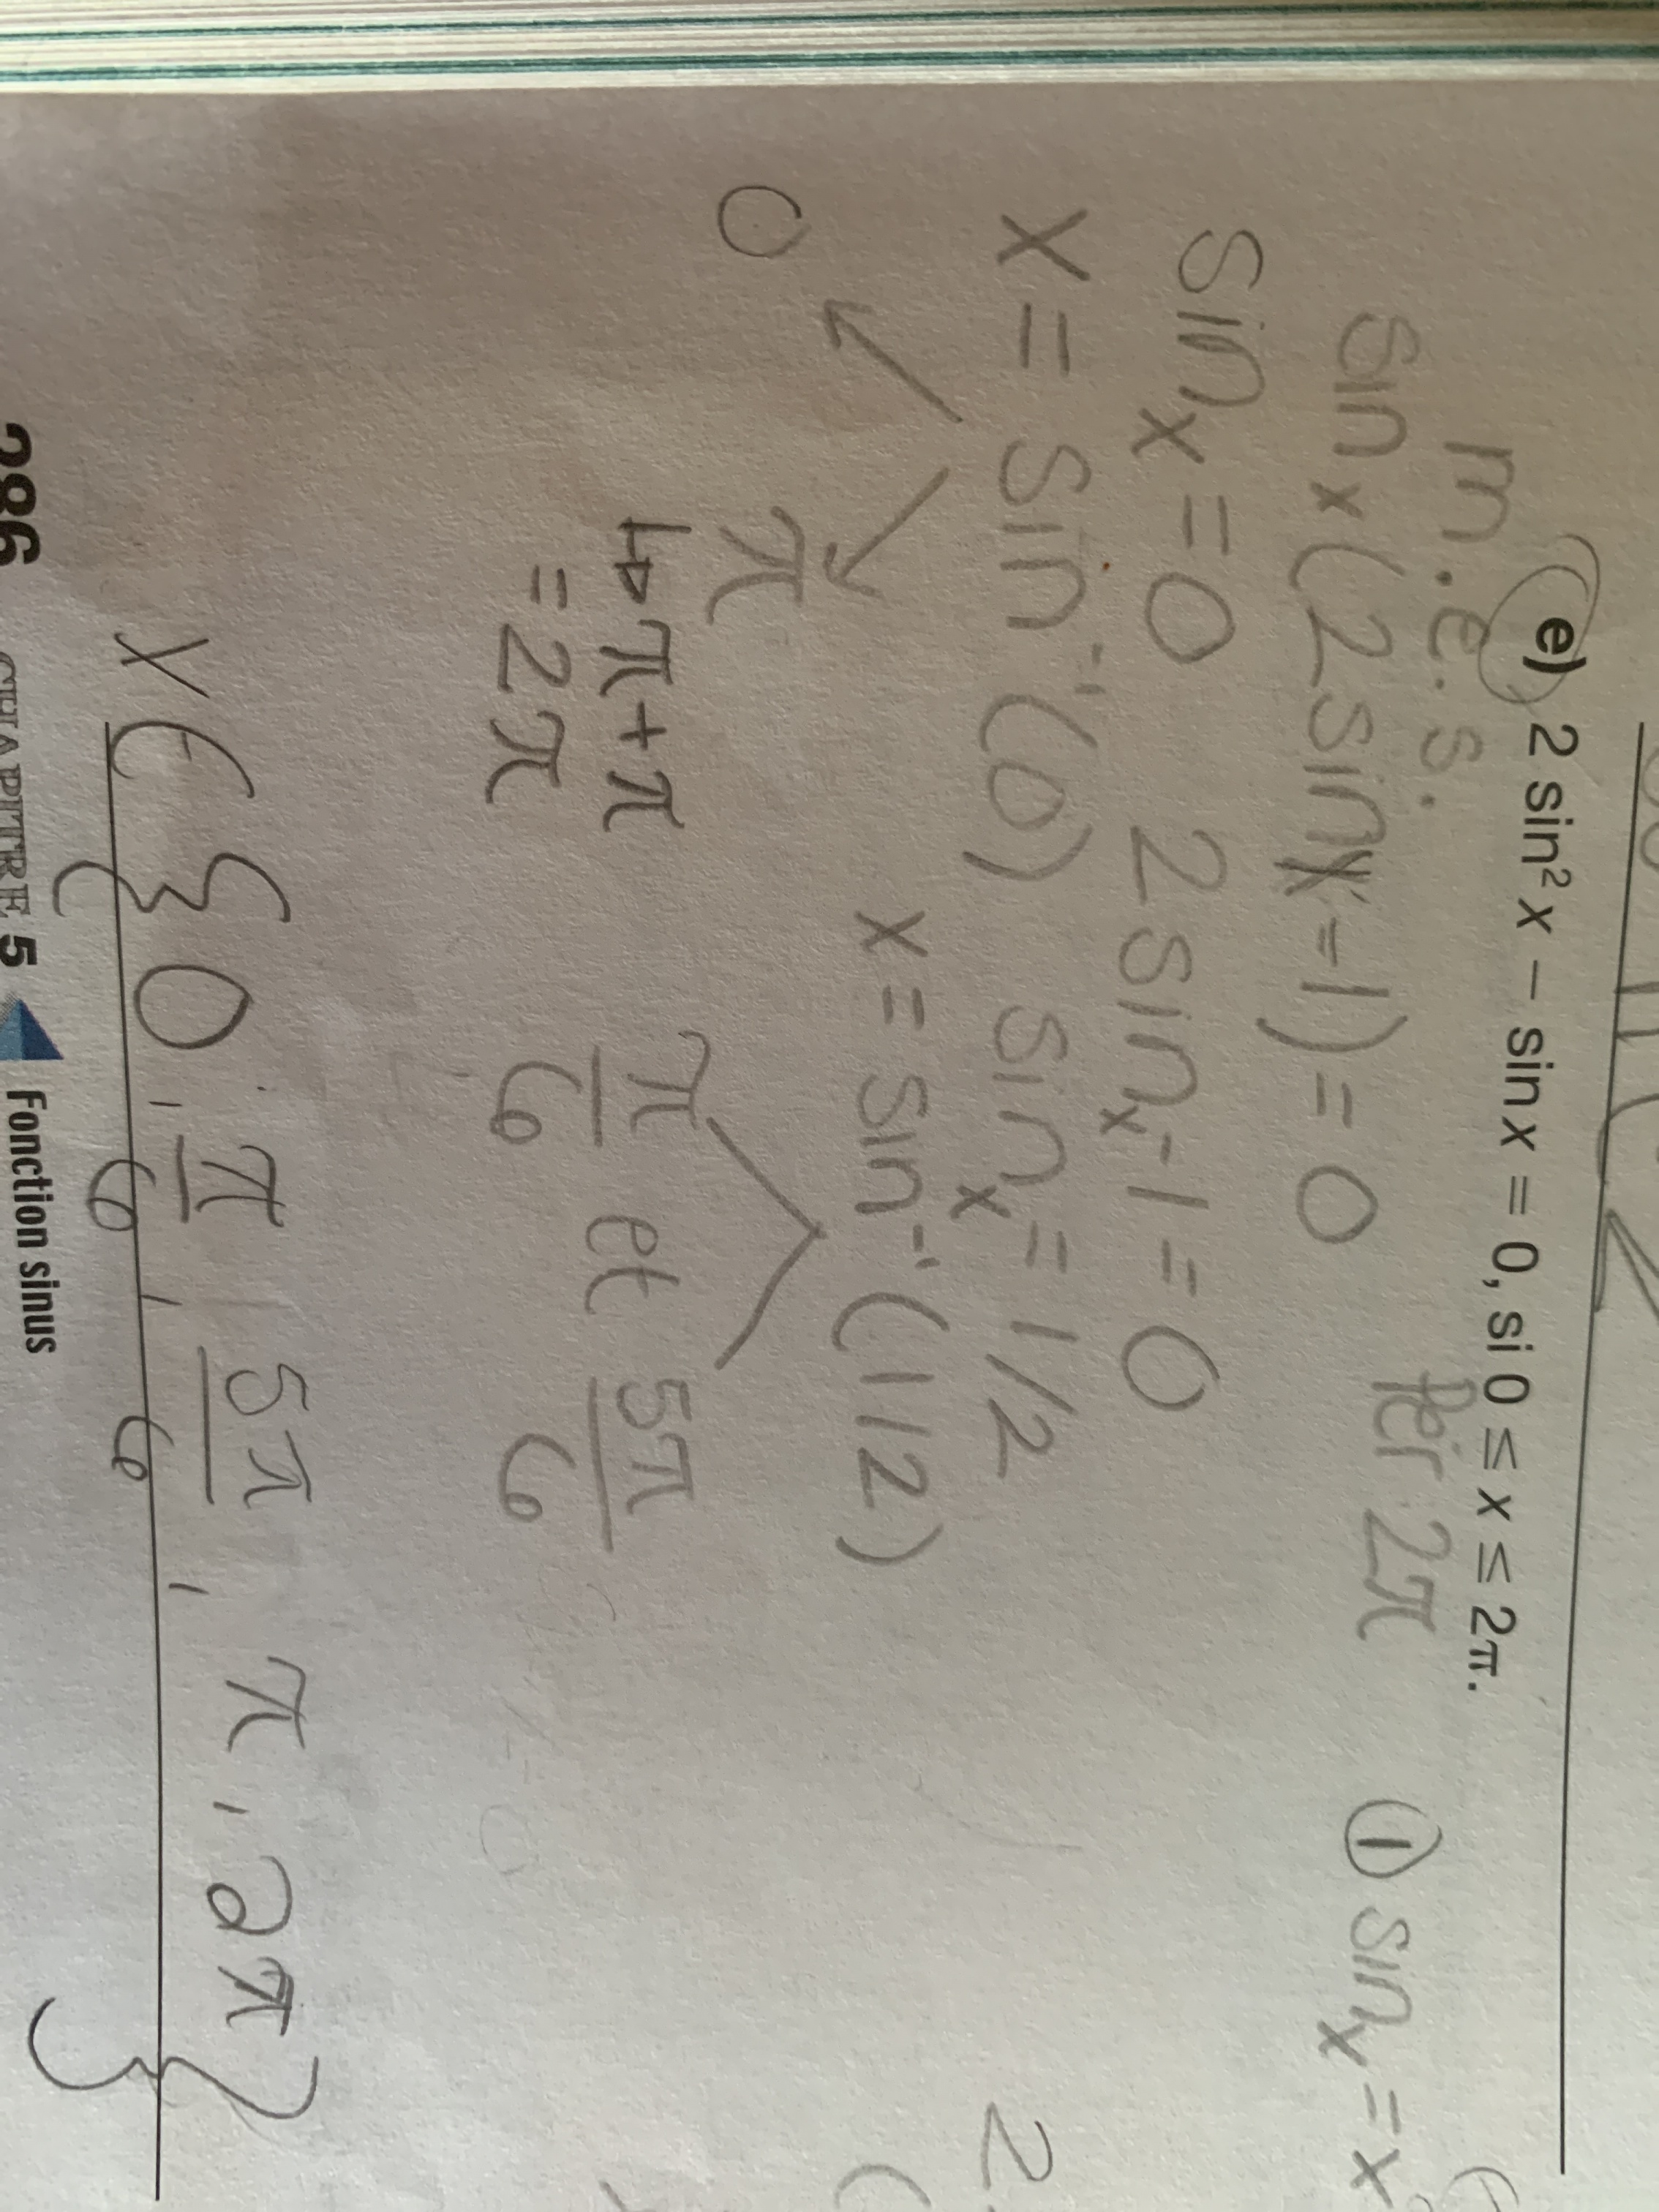 e) 2 sin² x – sin x = 0, si 0 ≤ x ≤ 2π.
m.e.s. Per 2π
sin x (2 sin x - 1) = 0 ① sin x = x
sin x = 0 2 sin x - 1 = 0
x = sin⁻¹ (0) sin x = 1/2
x = sin⁻¹ (1/2)
0 π
↳ π + π
= 2π
π/6 et 5π/6
x ∈ { 0, π/6, 5π/6, π, 2π }
286 CHAPITRE 5 Fonction sinus